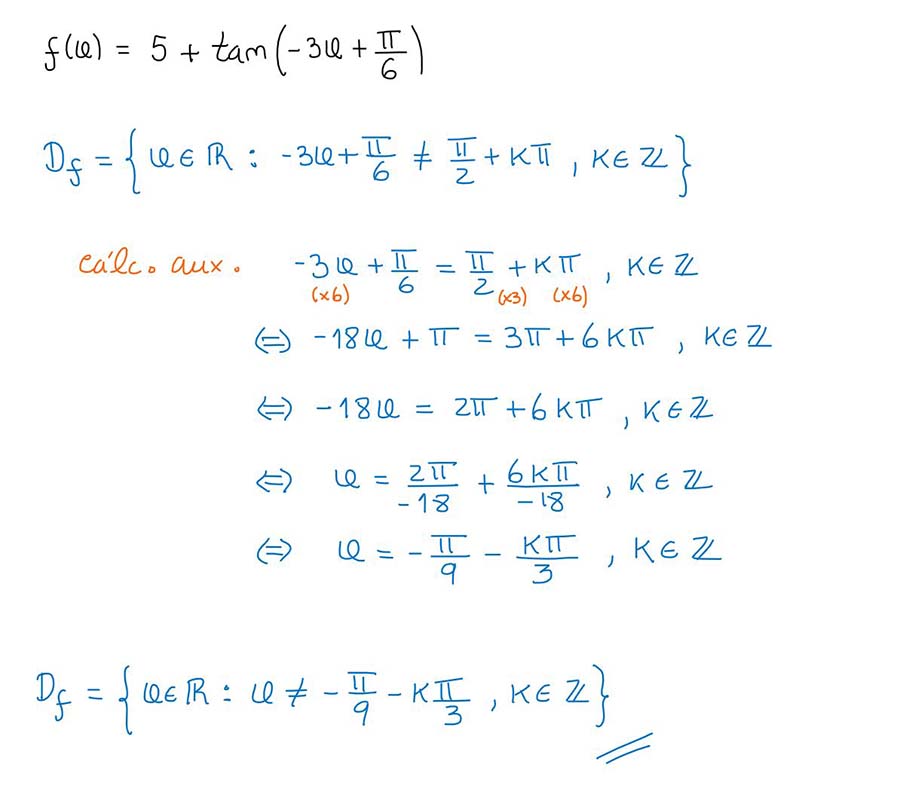 f(x) = 5 + tan(-3x + π/6)
D_f = { x ∈ ℝ : -3x + π/6 ≠ π/2 + Kπ , K ∈ ℤ }
Cálc. aux. -3x + π/6 = π/2 + Kπ , K ∈ ℤ
(x6) (x3) (x6)
⇔ -18x + π = 3π + 6Kπ , K ∈ ℤ
⇔ -18x = 2π + 6Kπ , K ∈ ℤ
⇔ x = 2π/-18 + 6Kπ/-18 , K ∈ ℤ
⇔ x = -π/9 - Kπ/3 , K ∈ ℤ
D_f = { x ∈ ℝ : x ≠ -π/9 - Kπ/3 , K ∈ ℤ }